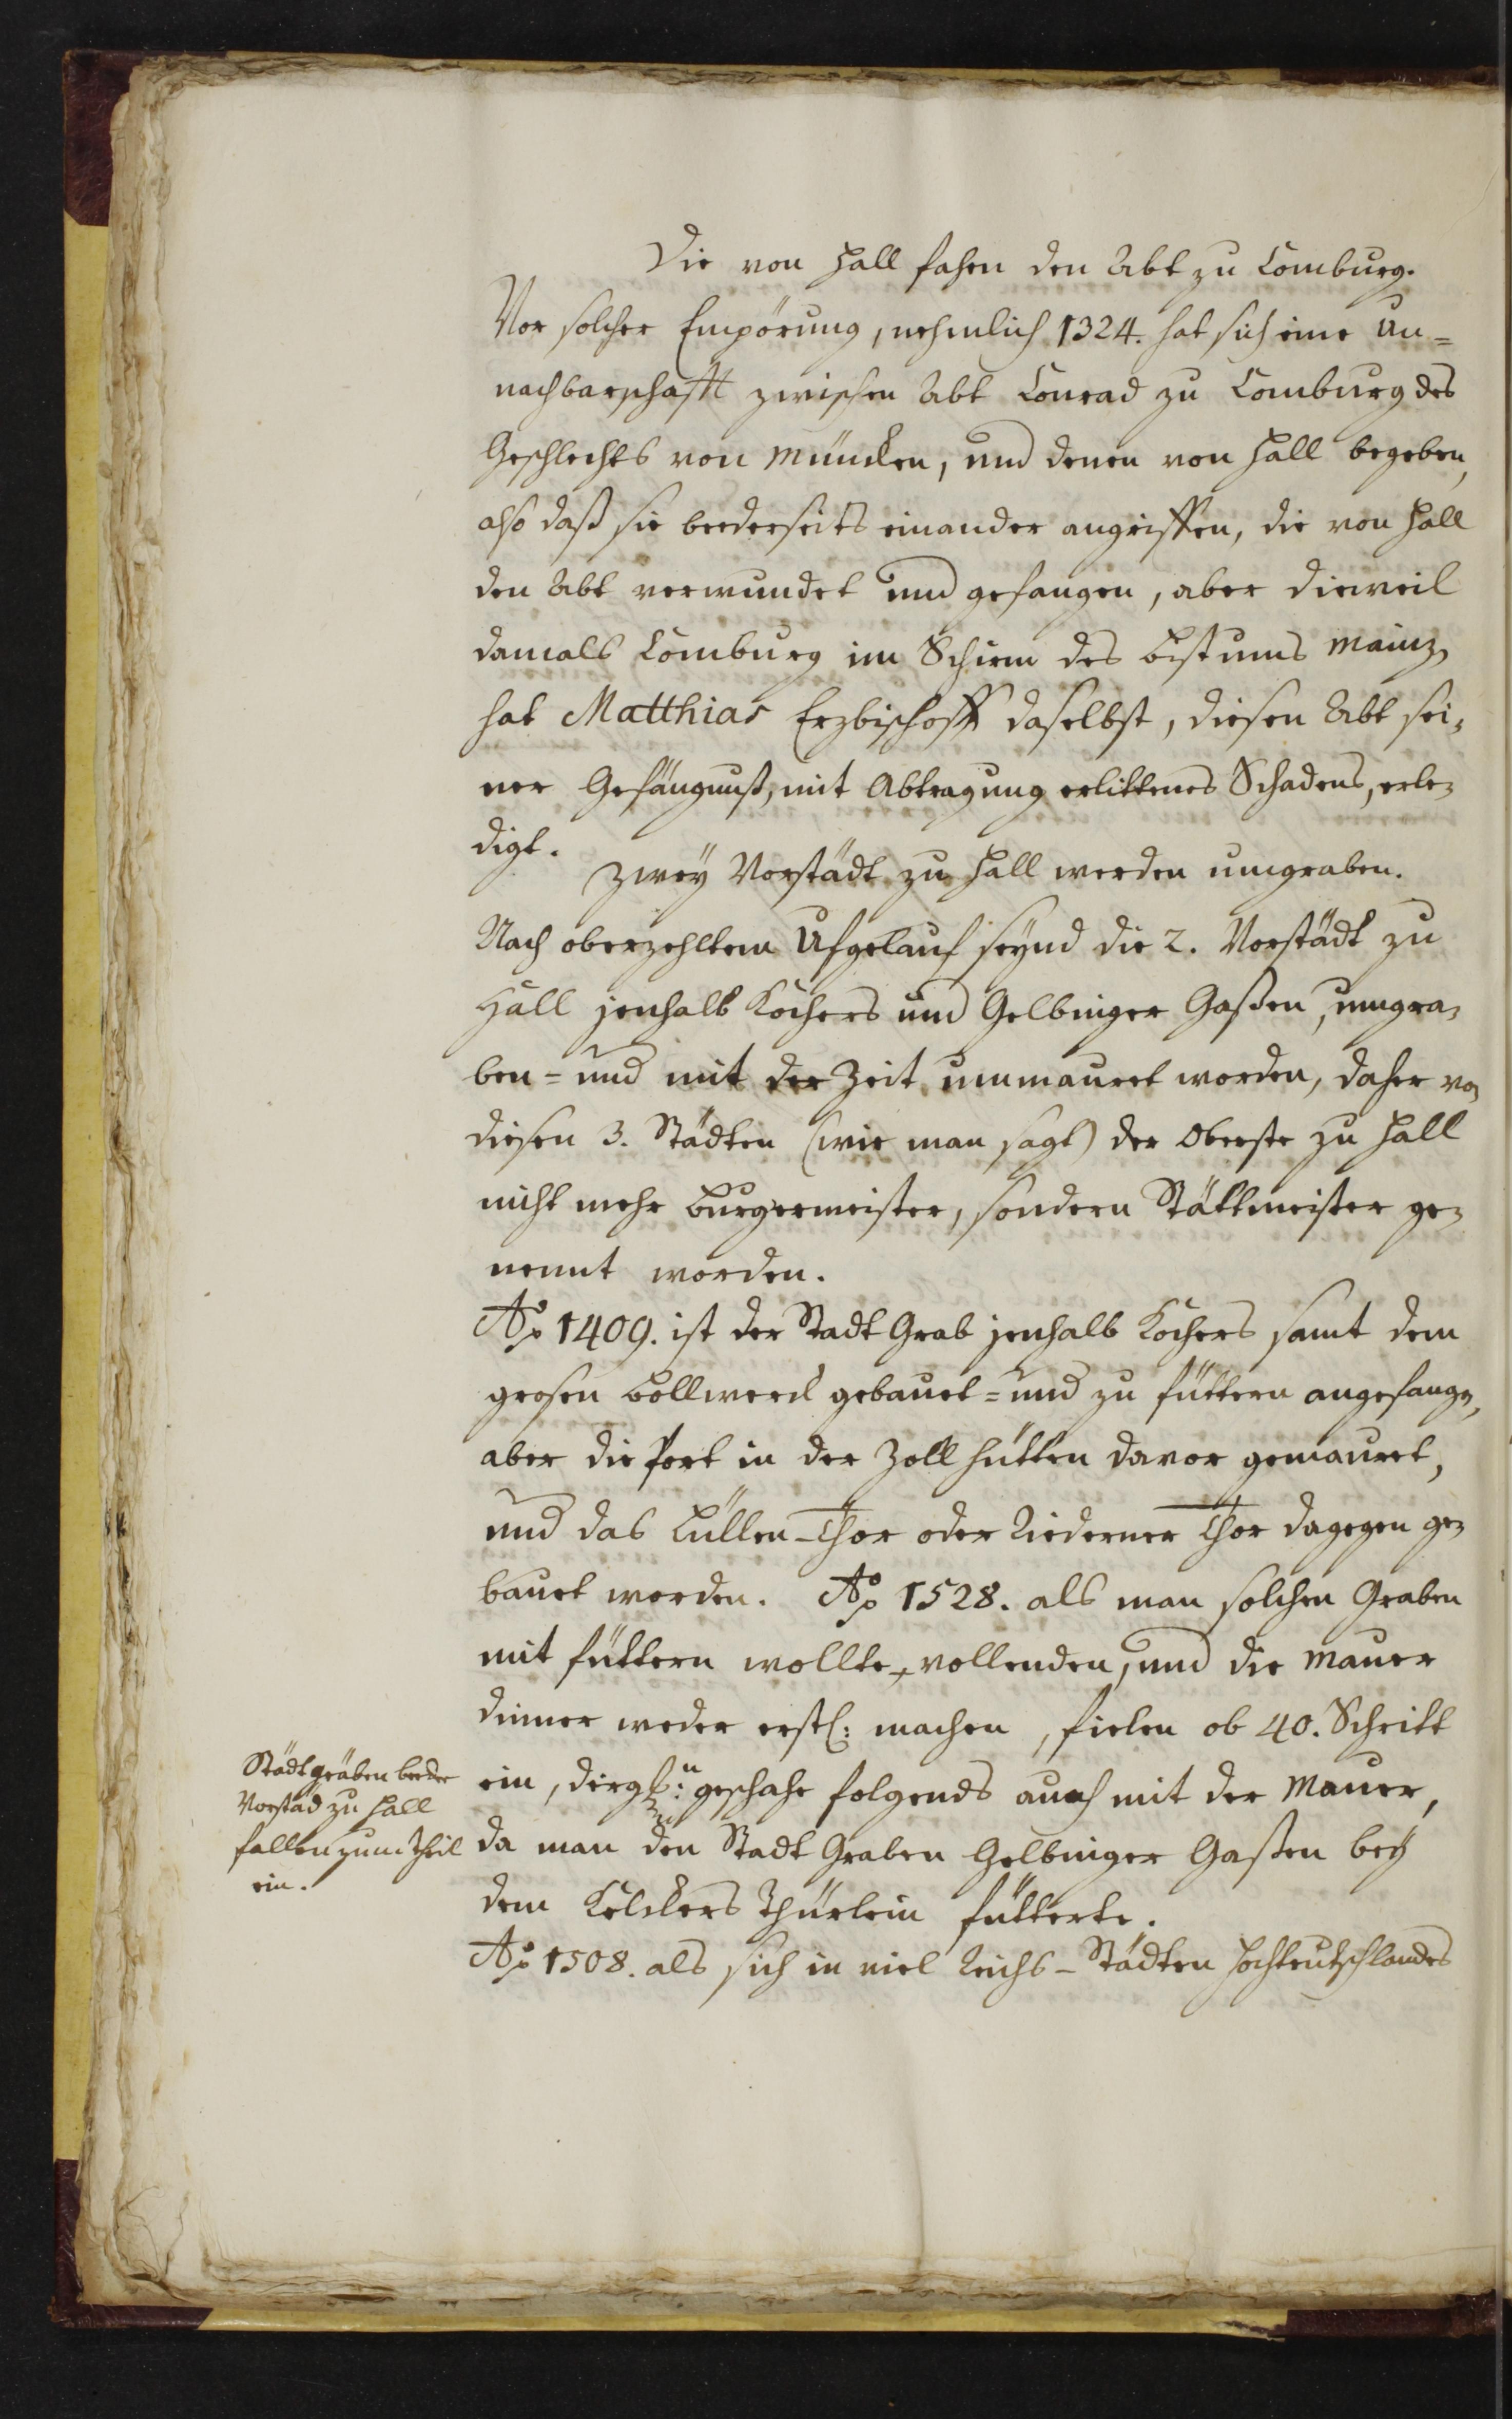 Die von Hall fahen den Abt zu Comburg.
Vor solcher Empörung, nehmlich 1324. hat sich eine Un=
nachbarschafft zwischen Abt Conrad zu Comburg des
Geschlechts von Müncken, und denen von Hall begeben,
also daß sie beederseits einander angriffen, die von Hall
den Abt verwundet und gefangen, aber dieweil
damals Comburg im Schirm des Bistums Mainz,
hat Matthias Erzbischoff daselbst, diesen Abt sei=
ner Gefängnuß, mit Abtragung erlittenes Schadens, erle=
digt.
Zwey Vorstädt zu Hall werden umgraben.
Nach oberzehltem Ufgelauf seynd die 2. Vorstädt zu
Hall jenhalb Kochers und Gelbinger Gaßen, umgra=
ben= und mit der Zeit ummauret worden, daher von
diesen 3. Städten (wie man sagt) der Oberste zu Hall
nicht mehr Burgermeister, sondern Stättmeister ge=
nennt worden.
Ao 1409. ist der Stadt Grab jenhalb Kochers samt dem
grosen Bollwerck gebauet= und zu füttern angefangen,
aber die Port in der Zollhütten davor gemauret,
und das Lüllen-Thor oder Riederner Thor dagegen ge=
bauet worden. Ao 1528. als man solchen Graben
mit füttern wollte vollenden, und die Mauer
dinner weder erstl: machen, fielen ob 40. Schritt
ein, dergl:n geschahe folgends auch mit der Mauer,
da man den Stadt Graben Gelbinger Gaßen bey
dem Kelckers Thürlein fütterte.
Ao 1508. als sich in viel Reichs-Städten Hochteutschlandes
Städtgräben beeder
Vorstäd zu Hall
fallen zum Theil
ein.